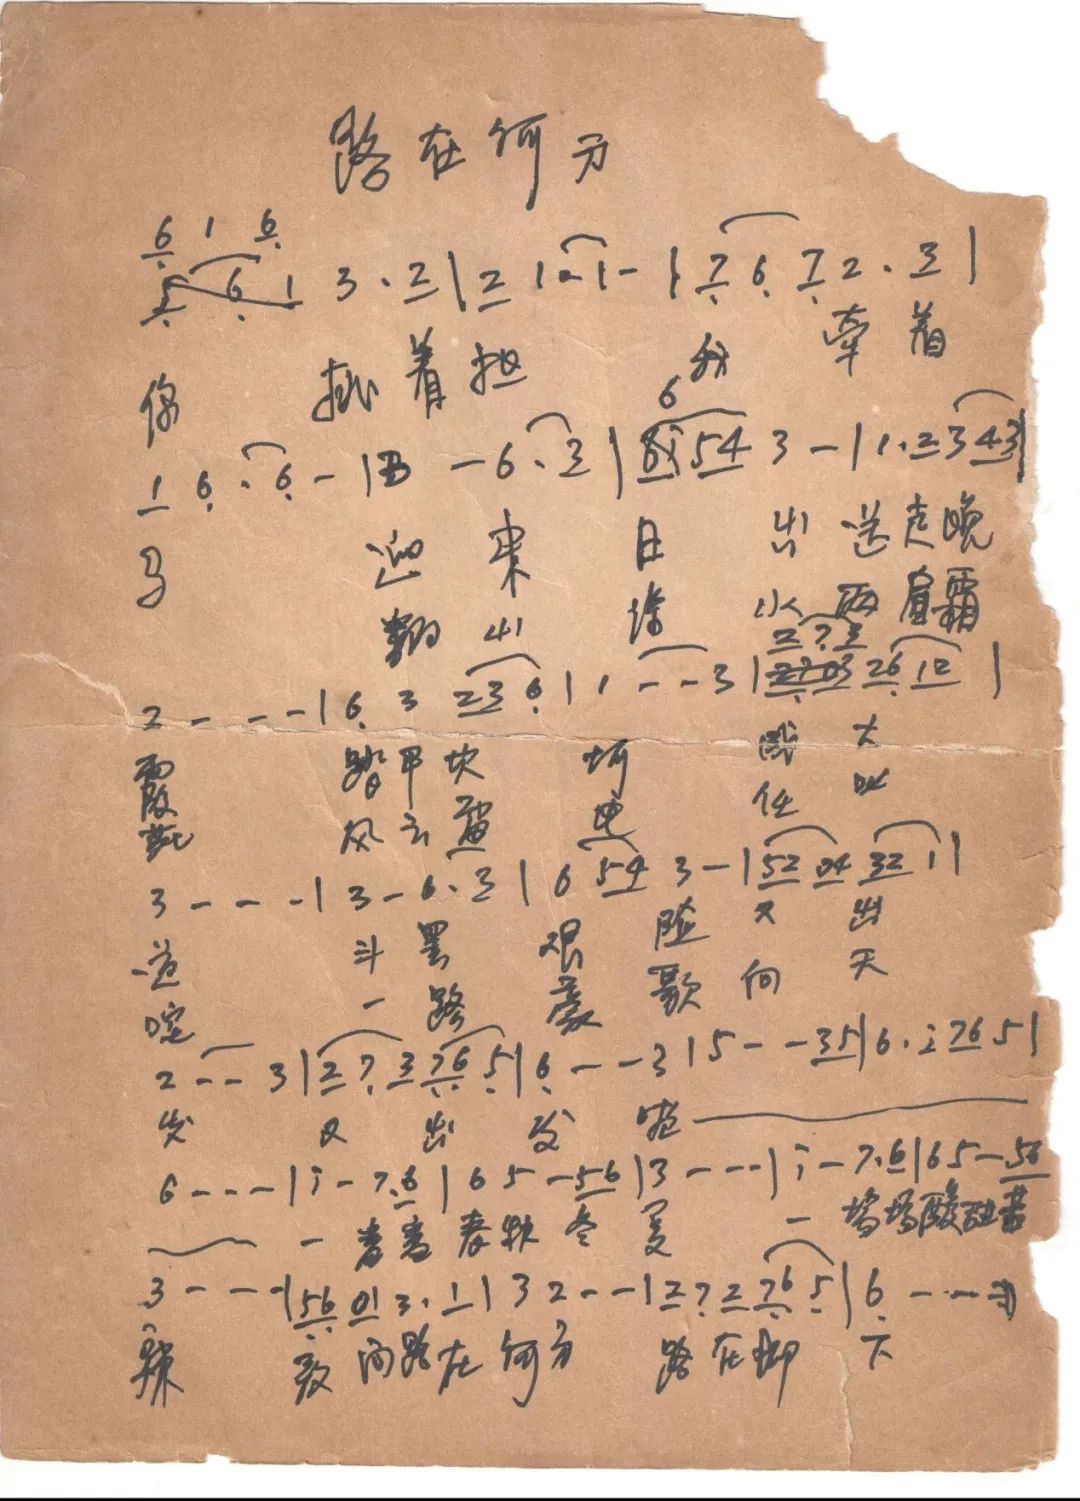 路在何方
6 1 6
5 6 1 3 · 2 | 2 1 · 1 - | 7 6 7 2 · 3 |
你 挑着担 我 牵着
6
1 6 · 6 - | 3 - 6 · 3 | 6i 54 3 - | 1 · 2 3 43 |
马 迎来日出送走晚
翻山涉水两肩霜
2 7 3
2 - - - | 6 3 23 6 | 1 - - 3 | 26 12 |
霞 踏平坎坷成大
风云雷电任叱
3 - - - | 3 - 6 · 3 | 6 54 3 - | 52 04 32 1 |
道 斗罢艰险又出
咤 一路豪歌向天
2 - - 3 | 2 7 3 76 5 | 6 - - 3 | 5 - - 35 | 6 · i 76 5 |
发 又出发 啦
6 - - - | i - 7 · 6 | 6 5 - 56 | 3 - - - | i - 7 · 6 | 6 5 - 56
一番番春秋冬夏 一场场酸甜苦
3 - - - | 56 01 3 · 1 | 3 2 - - | 2 7 2 76 5 | 6 - - -
辣 敢问路在何方 路在脚下